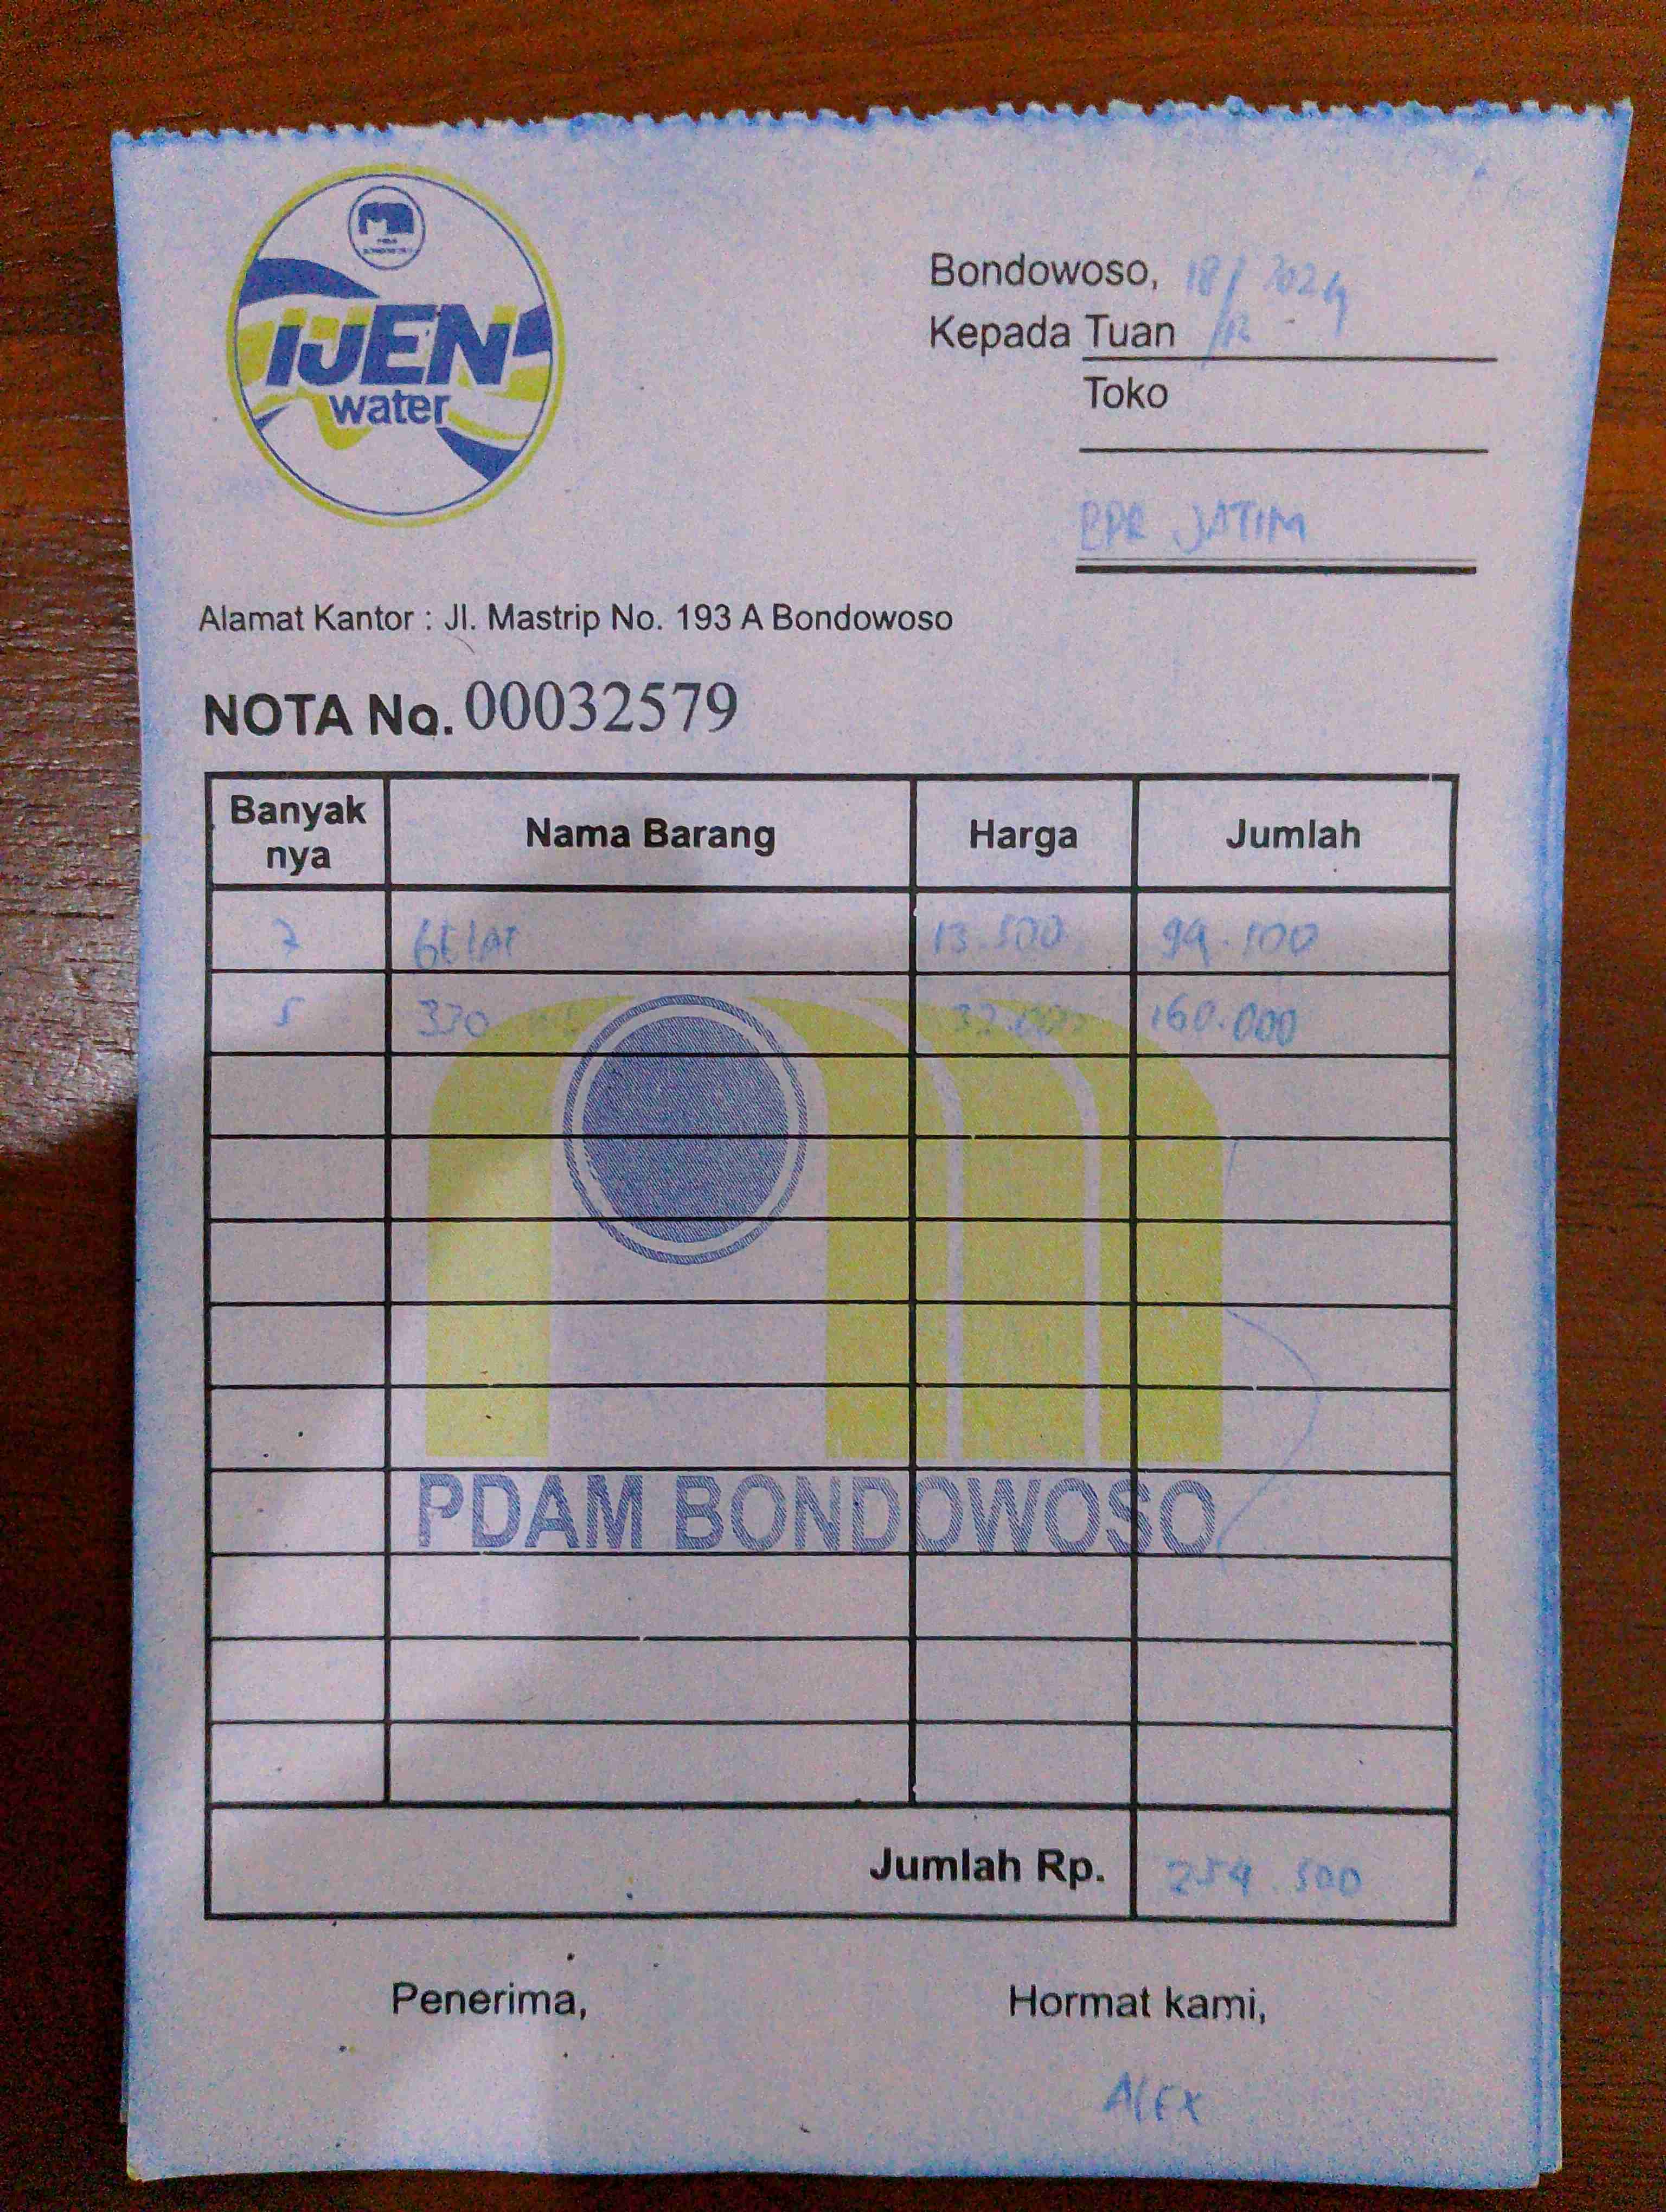 IJEN
water
Bondowoso, 18/12 - 2024
Kepada Tuan
Toko
BPR JATIM
Alamat Kantor : Jl. Mastrip No. 193 A Bondowoso
NOTA No. 00032579
Banyak nya Nama Barang Harga Jumlah
7 GELAS 13.500 94.500
5 330 32.000 160.000
PDAM BONDOWOSO
Jumlah Rp. 254.500
Penerima, Hormat kami,
ALEX